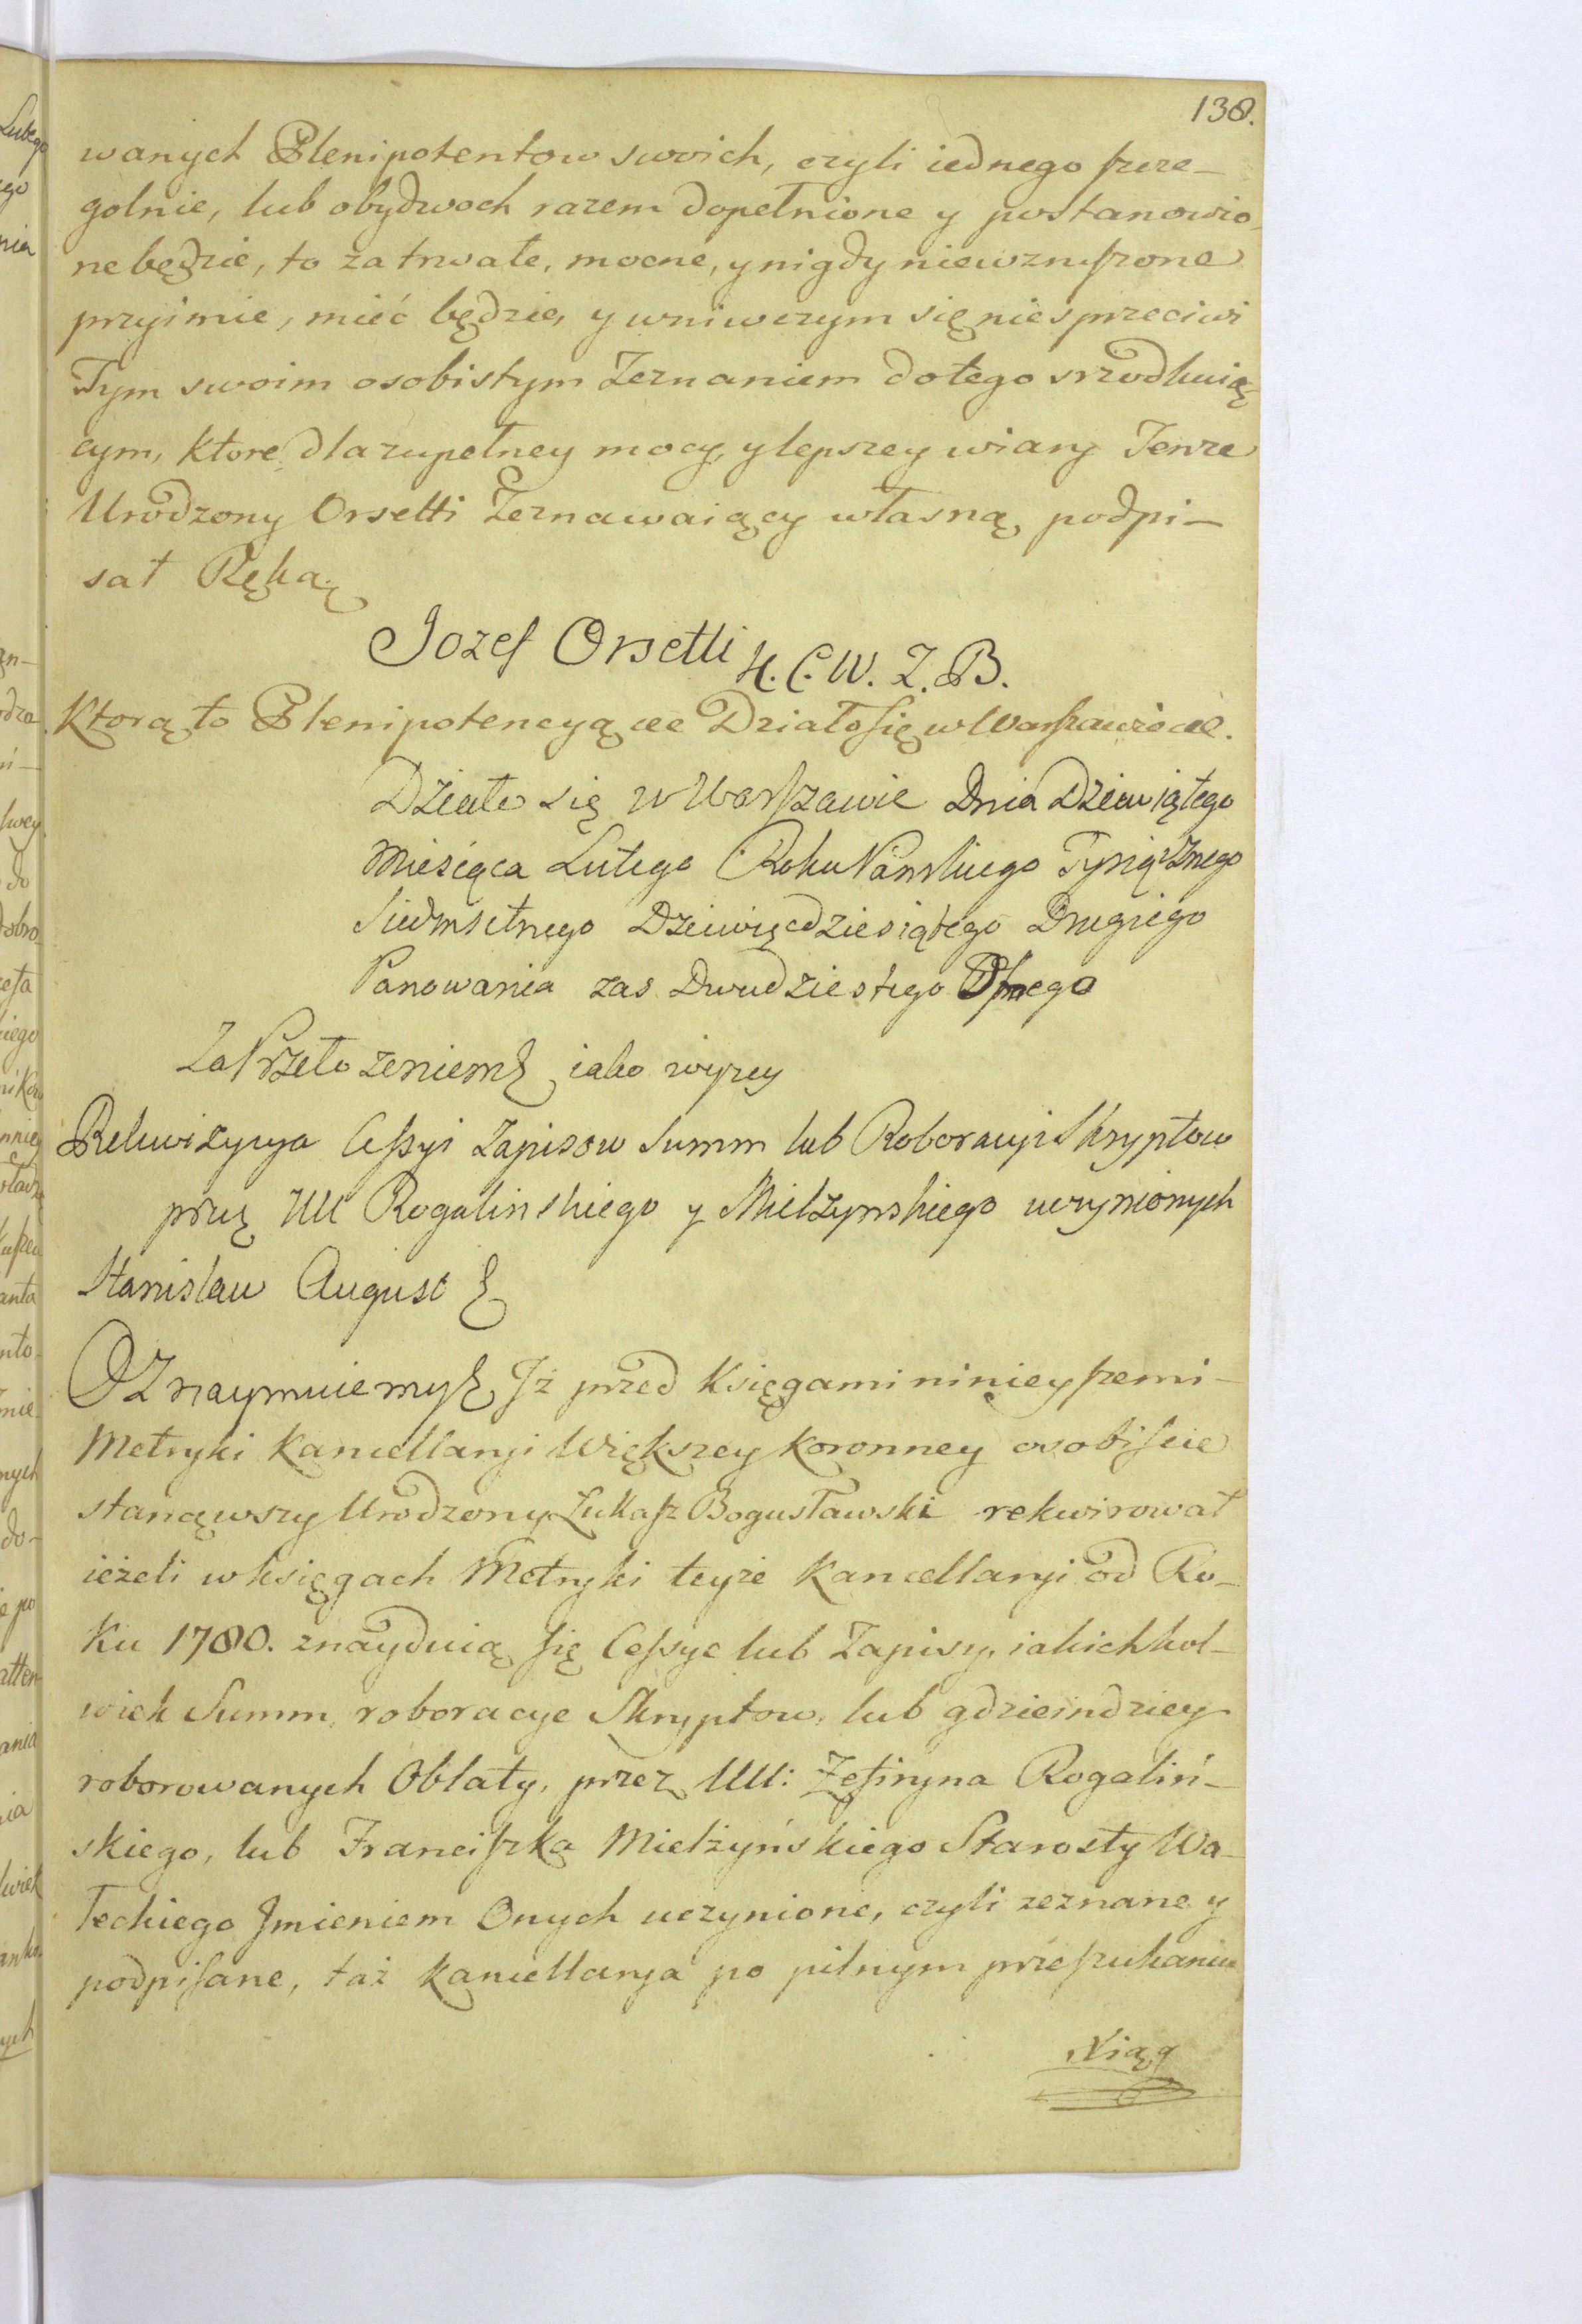 138.
wanych Plenipotentow swoich, czyli iednego szcze-
golnie, lub obydwoch razem dopełnione y postanowio-
ne będzie, to za trwałe, mocne, y nigdy niewzruszone
przyimie, mieć będzie, y wniwczym się nie sprzeciwi
Tym swoim osobistym Zeznaniem do tego srzodkuią-
cym, ktore dla zupełney mocy, y lepszey wiary Tenze
Urodzony Orsetti Zeznawaiący własną podpi-
sał Ręką
Jozef Orsetti H. C. W. Z. B.
Ktorą to Plenipotencyą etc Działo się w Warszawie etc.
Działo się w Warszawie Dnia Dziewiątego
Miesiąca Lutego Roku Panskiego Tysiącznego
Siedmsetnego Dziewięcdziesiątego Drugiego
Panowania zas Dwudziestego Osmego
Za Przełozeniem iako wyzey
Rekwizycya Cessyi Zapisow Summ lub Roboracyi Skryptow
przez UU Rogalinskiego y Mielzynskiego uczynionych
Stanisław August
Oznaymuiemy Iż przed Księgami ninieyszemi
Metryki Kancellaryi Większey Koronney osobiscie
stanąwszy Urodzony Łukasz Bogusławski rekwirował
ieżeli w księgach Metryki teyże Kancellaryi od Ro-
ku 1780. znayduią się Cessye lub Zapisy, iakichkol-
wiek Summ, roboracye Skryptow, lub gdzieindziey
roborowanych Oblaty, przez UU: Zefiryna Rogaliń-
skiego, lub Franciszka Mielżyńskiego Starosty Wa-
łeckiego Imieniem Onych uczynione, czyli zeznane y
podpisane, taż Kancellarya po pilnym przeszukaniu
Xiąg